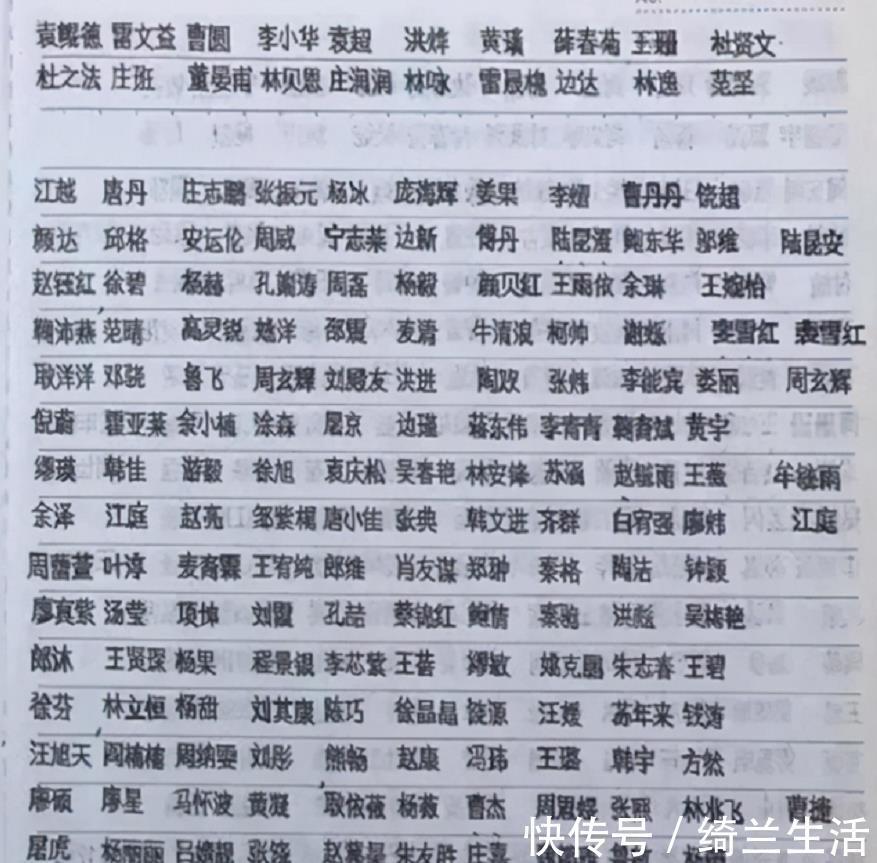 袁鲲德 雷文益 曹圆 李小华 袁超 洪烨 黄瑱 薛春菊 王珊 杜贤文
杜之法 庄班 董晏甫 林贝恩 庄润润 林咏 雷晟槐 边达 林逸 范坚
江越 唐丹 庄志鹏 张振元 杨冰 庞海辉 姜果 曹丹丹 饶超
颜达 邱格 安坛伦 周威 宁志莱 边新 陆昆瀣 鲍东华 陆昆安
赵钰红 徐碧 杨赫 孔崩涛 周磊 杨毅 颜贝红 王雨依 余琳
鞠沛燕 范晴 高灵锐 越洋 邵震 麦清 牛清浪 柯帅 谢媛 雯雪红 袁雪红
耿洋洋 邓骁 鲁飞 周玄辉 刘殿友 洪进 陶欢 张炜 李能宾 娄丽 周玄辉
倪蔚 霍亚莱 余小楠 涂森 屈京 边瑾 蒋东伟 李青青 黄宇
缪瑛 韩佳 游毅 徐旭 袁庆松 吴春艳 林安锋 苏涵 赵毓雨 王薇 牟毓雨
余泽 江庭 赵亮 邹紫棍 唐小佳 张典 韩文进 齐群 白宥强 廖炜 江庭
周蕾萱 叶淳 麦裔霖 王宥纯 郎维 肖友谋 郑翀 秦格 陶沽 钟颢
廖真紫 汤莹 项悚 刘霞 孔喆 蔡锦红 黄倩 秦驰 洪彪 吴梅艳
郎沐 王贤琛 杨果 程景银 李芯萦 王荟 缪敏 郑克鹏 朱志春 王碧
徐芬 林立恒 杨甜 刘其康 陈巧 徐晶晶 饶源 汪媛 苏年来 钱涛
汪旭天 阎楠楠 周纳雯 刘彤 熊畅 赵康 冯玮 王璐 韩宇 方然
廖硕 廖星 马怀波 黄凝 耿依薇 杨薇 曹杰 张丽 林兆飞
屈虎 杨丽丽 吕嫦靓 张饶 朱友胜 庄熹
快传号 / 绮兰生活